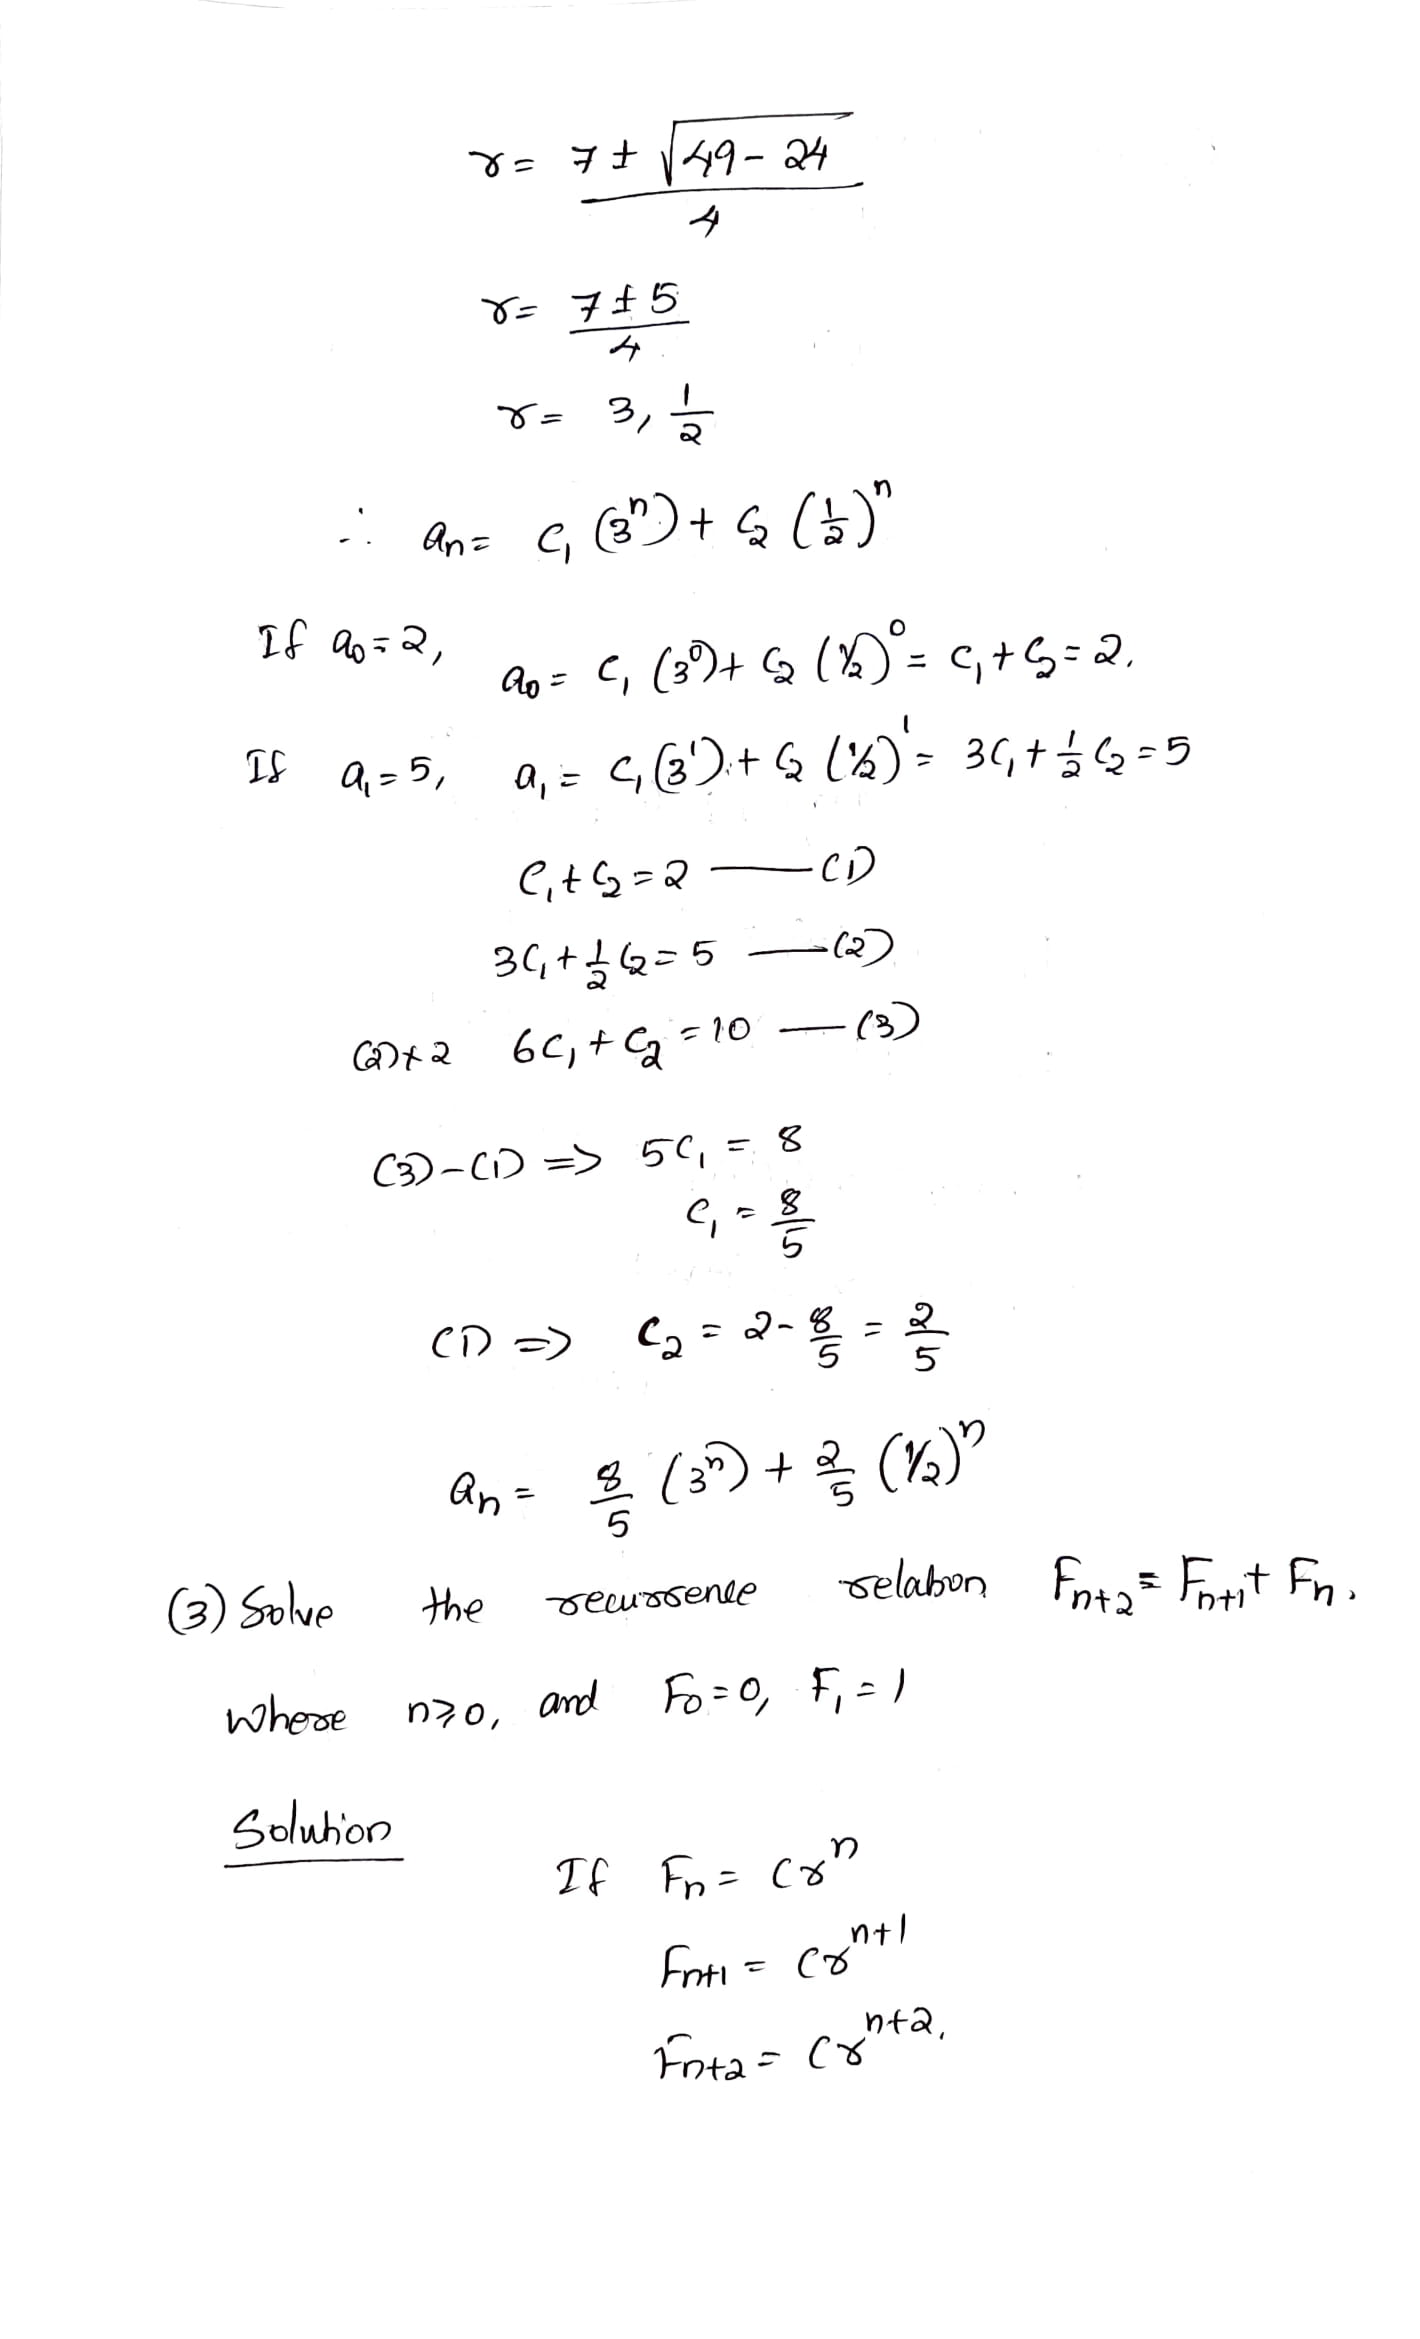 r = 7 ± √49 - 24
4
r = 7 ± 5
4
r = 3, 1/2
∴ an = C₁ (3ⁿ) + C₂ (1/2)ⁿ
If a₀ = 2, a₀ = C₁ (3⁰) + C₂ (1/2)⁰ = C₁ + C₂ = 2.
If a₁ = 5, a₁ = C₁ (3¹) + C₂ (1/2)¹ = 3C₁ + 1/2 C₂ = 5
C₁ + C₂ = 2 — (1)
3C₁ + 1/2 C₂ = 5 — (2)
(2) × 2 6C₁ + C₂ = 10 — (3)
(3) - (1) => 5C₁ = 8
C₁ = 8/5
(1) => C₂ = 2 - 8/5 = 2/5
an = 8/5 (3ⁿ) + 2/5 (1/2)ⁿ
(3) Solve the recurrence relation Fn+2 = Fn+1 + Fn,
where n ≥ 0, and F₀ = 0, F₁ = 1
Solution
If Fn = Crⁿ
Fn+1 = Crⁿ⁺¹
Fn+2 = Crⁿ⁺².